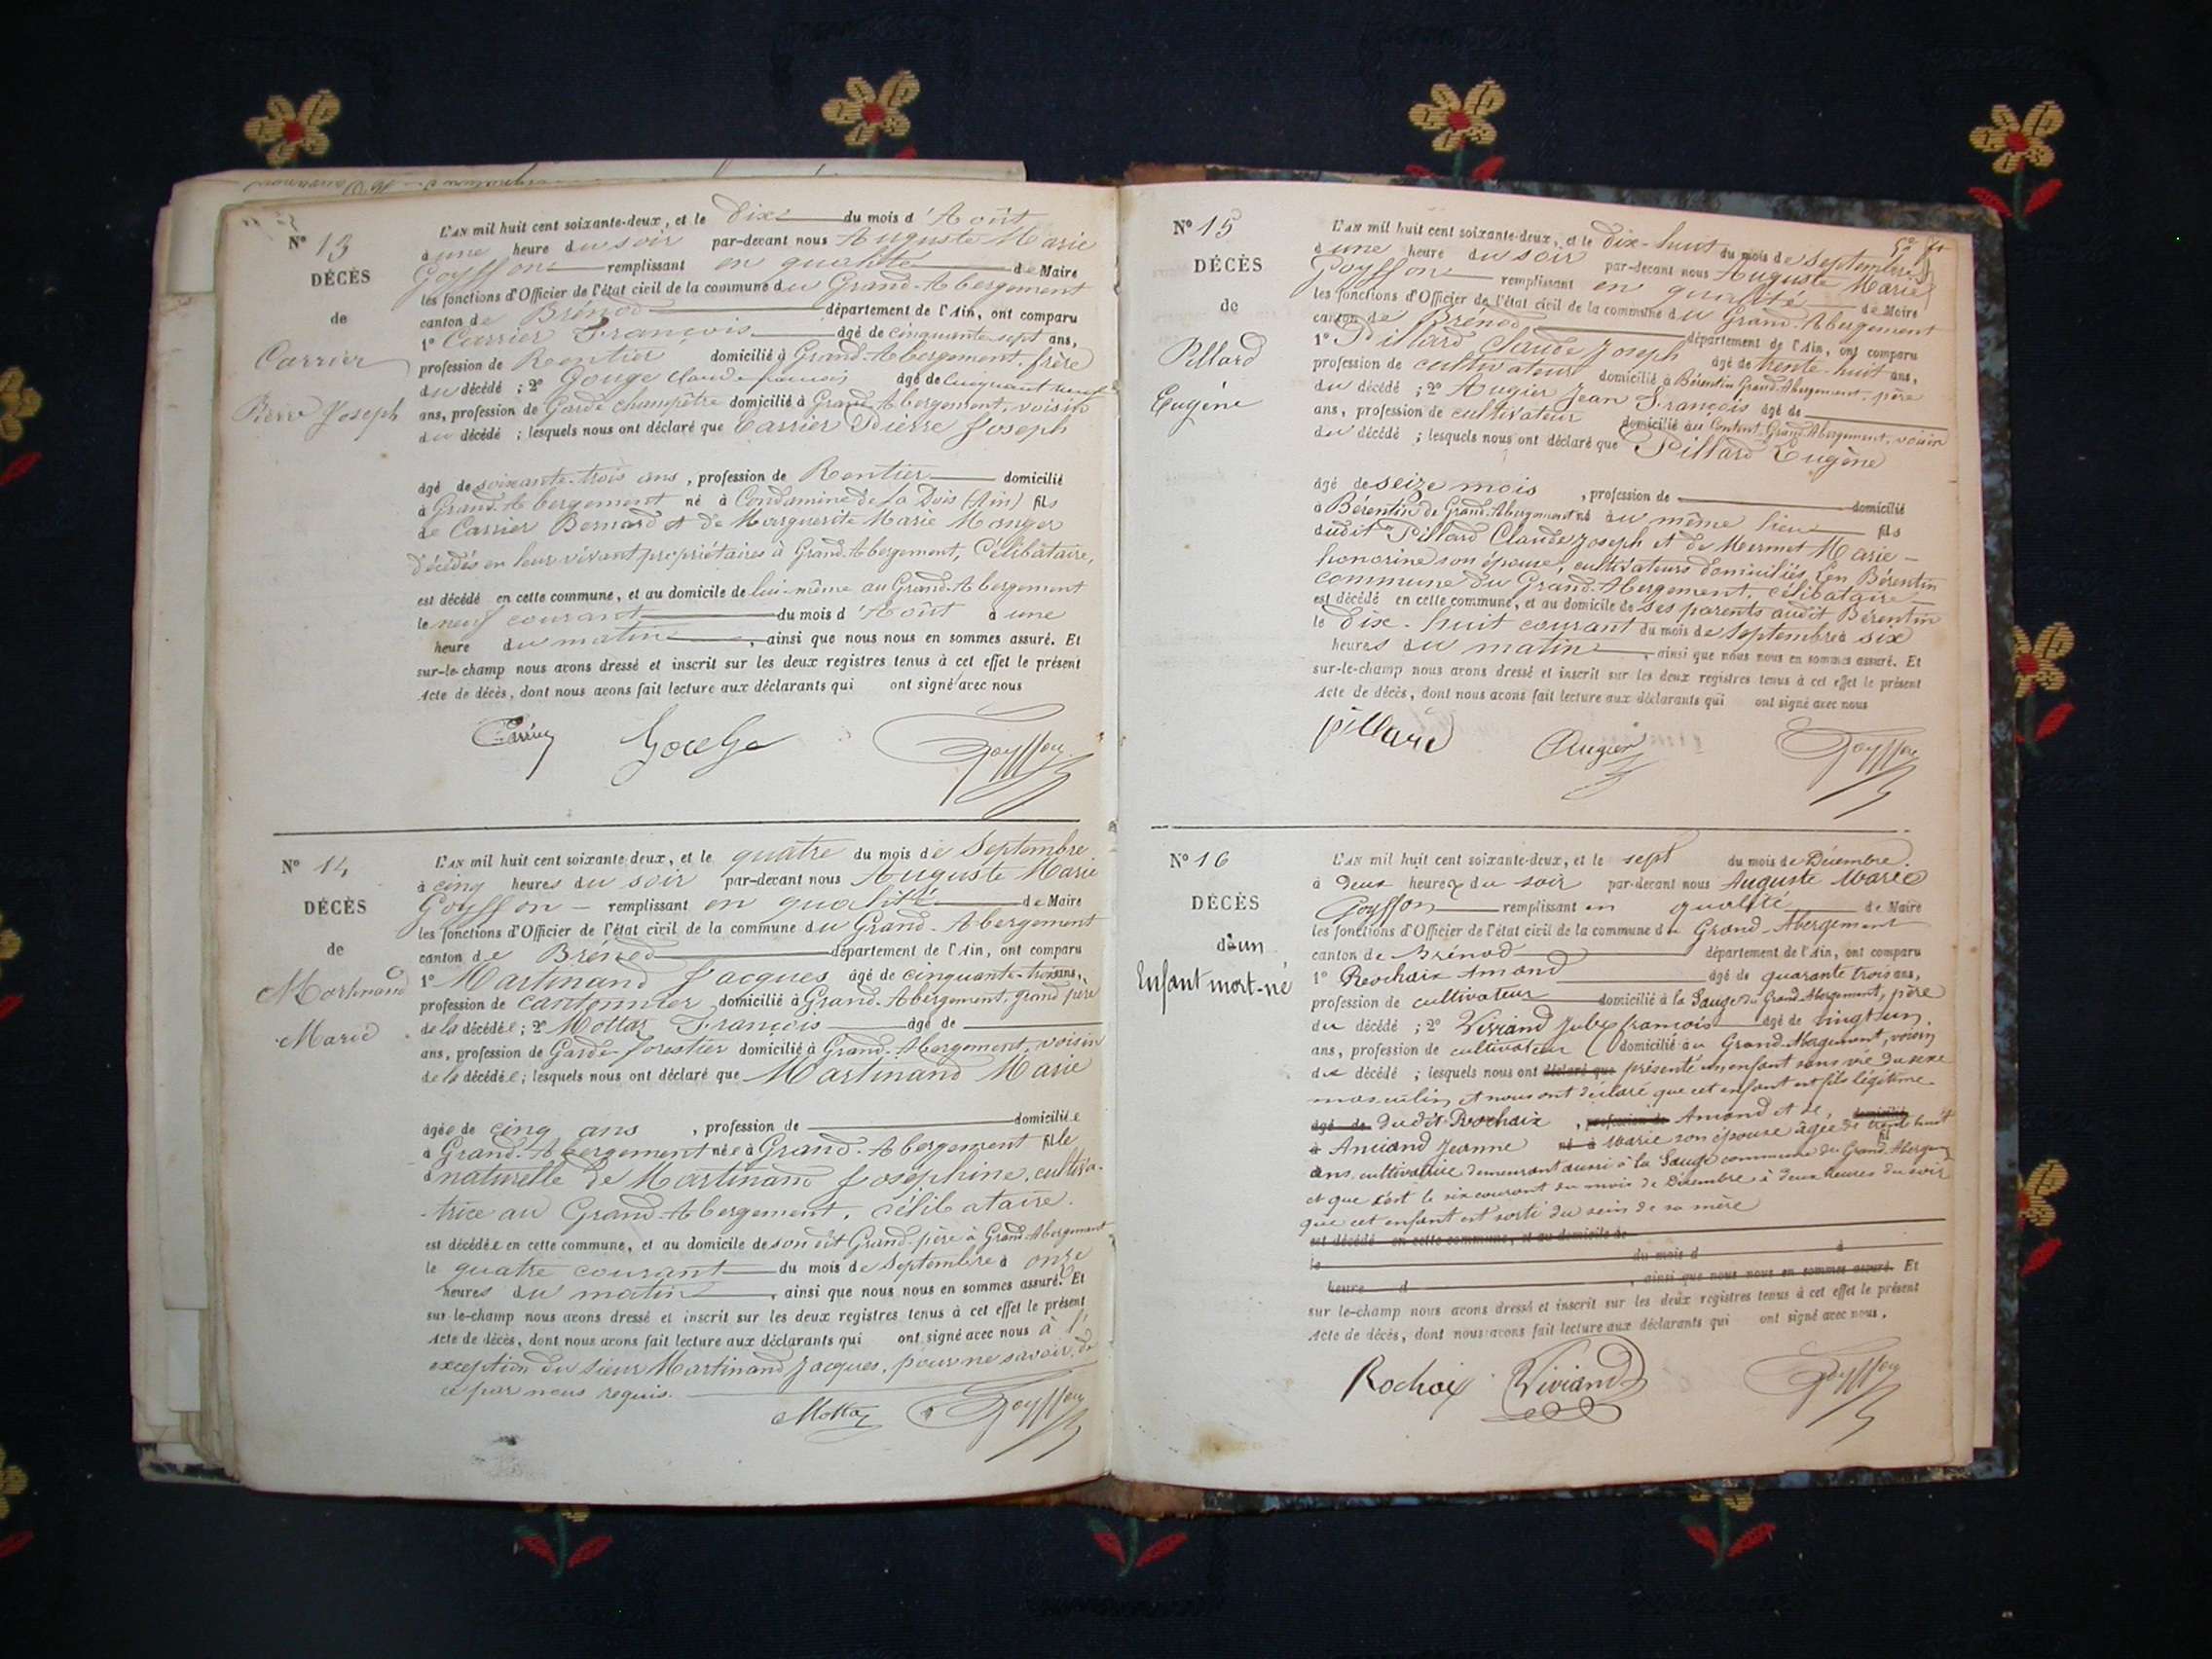 Nº 13
DÉCÈS
de
Carrier
Pierre Joseph
L'AN mil huit cent soixante-deux, et le dix du mois d'Août
à une heure du soir par-devant nous Auguste Marie
Goyffon remplissant en qualité de Maire
les fonctions d'Officier de l'état civil de la commune du Grand-Abergement
canton de Brénod département de l'Ain, ont comparu
1º Carrier François âgé de cinquante-sept ans,
profession de Rentier domicilié à Grand-Abergement, frère
du décédé ; 2º Gouge Claude françois âgé de cinquant neuf
ans, profession de Garde champêtre domicilié à Grand-Abergement, voisin
du décédé ; lesquels nous ont déclaré que Carrier Pierre Joseph
âgé de soixante-trois ans, profession de Rentier domicilié
à Grand-Abergement né à Condamine de la Dois (Ain) fils
de Carrier Bernard et de Marguerite Marie Monger
décédés en leur vivant propriétaires à Grand-Abergement, Célibataire,
est décédé en cette commune, et au domicile de lui-même au Grand-Abergement
le neuf courant du mois d'Août à une
heure du matin, ainsi que nous nous en sommes assuré. Et
sur-le-champ nous avons dressé et inscrit sur les deux registres tenus à cet effet le présent
Acte de décès, dont nous avons fait lecture aux déclarants qui ont signé avec nous
Carrier Gouge Goyffon
Nº 14
DÉCÈS
de
Martinand
Marie
L'AN mil huit cent soixante deux, et le quatre du mois de Septembre
à cinq heures du soir par-devant nous Auguste Marie
Goyffon - remplissant en qualité de Maire
les fonctions d'Officier de l'état civil de la commune du Grand-Abergement
canton de Brénod département de l'Ain, ont comparu
1º Martinand Jacques âgé de cinquante-trois ans,
profession de cantonnier domicilié à Grand-Abergement, grand père
de la décédée ; 2º Mottaz François âgé de
ans, profession de Garde-forestier domicilié à Grand-Abergement, voisin
de la décédée ; lesquels nous ont déclaré que Martinand Marie
âgée de cinq ans, profession de domiciliée
à Grand-Abergement née à Grand-Abergement fille
naturelle de Martinand Josephine, cultiva-
-trice au Grand-Abergement, célibataire.
est décédée en cette commune, et au domicile de son dit Grand-père à Grand Abergement
le quatre courant du mois de Septembre à onze
heures du matin, ainsi que nous nous en sommes assuré. Et
sur le-champ nous avons dressé et inscrit sur les deux registres tenus à cet effet le présent
Acte de décès, dont nous avons fait lecture aux déclarants qui ont signé avec nous à l'
exception du sieur Martinand Jacques, pour ne savoir, de
ce par nous requis.
Mottaz Goyffon
Nº 15
DÉCÈS
de
Pillard
Eugène
L'AN mil huit cent soixante-deux, et le dix-huit du mois de Septembre
à une heure du soir par-devant nous Auguste Marie
Goyffon remplissant en qualité de Maire
les fonctions d'Officier de l'état civil de la commune du Grand-Abergement
canton de Brénod département de l'Ain, ont comparu
1º Pillard Claude Joseph âgé de trente-huit ans,
profession de cultivateur domicilié à Bérentin Grand-Abergement, père
du décédé ; 2º Augier Jean François âgé de
ans, profession de cultivateur domicilié au Grand-Abergement, voisin
du décédé ; lesquels nous ont déclaré que Pillard Eugène
âgé de seize mois, profession de domicilié
à Bérentin de Grand-Abergement né au même lieu fils
dudit Pillard Claude Joseph et de Mermet Marie-
honorine son épouse, cultivateurs domiciliés en Bérentin
commune du Grand-Abergement, célibataire
est décédé en cette commune, et au domicile de ses parents audit Bérentin
le dix-huit courant du mois de Septembre à six
heures du matin, ainsi que nous nous en sommes assuré. Et
sur-le-champ nous avons dressé et inscrit sur les deux registres tenus à cet effet le présent
Acte de décès, dont nous avons fait lecture aux déclarants qui ont signé avec nous
pillard Augier Goyffon
Nº 16
DÉCÈS
d'un
Enfant mort-né
L'AN mil huit cent soixante-deux, et le sept du mois de Décembre.
à deux heures du soir par-devant nous Auguste Marie
Goyffon remplissant en qualité de Maire
les fonctions d'Officier de l'état civil de la commune du Grand-Abergement
canton de Brénod département de l'Ain, ont comparu
1º Rochaix Amand âgé de quarante trois ans,
profession de cultivateur domicilié à la Sauge du Grand-Abergement, père
du décédé ; 2º Viviand Jules françois âgé de vingt un
ans, profession de cultivateur domicilié au Grand-Abergement, voisin
du décédé ; lesquels nous ont déclaré que présenté un enfant sans vie du sexe
masculin, et nous ont déclaré que cet enfant est fils légitime
âgé de dudit Rochaix, profession de Amand et de, domicilié
à Jeanne né à Marie son épouse âgée de trente huit fil
ans cultivatrice demeurant aussi à la Sauge commune du Grand-Abergement
et que c'est le six courant du mois de Décembre à deux heures du soir
que cet enfant est sorti du sein de sa mère
est décédé en cette commune, et au domicile de
le du mois d à
heure d, ainsi que nous nous en sommes assuré. Et
sur le-champ nous avons dressé et inscrit sur les deux registres tenus à cet effet le présent
Acte de décès, dont nous avons fait lecture aux déclarants qui ont signé avec nous.
Rochaix Viviand Goyffon